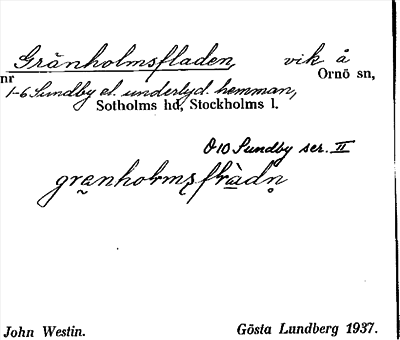 Gränholmsfladen, vik å
nr Ornö sn,
1-6 Sundby el. underlyd. hemman,
Sotholms hd, Stockholms l.
O10 Sundby ser. II
granholmsfladn
John Westin. Gösta Lundberg 1937.